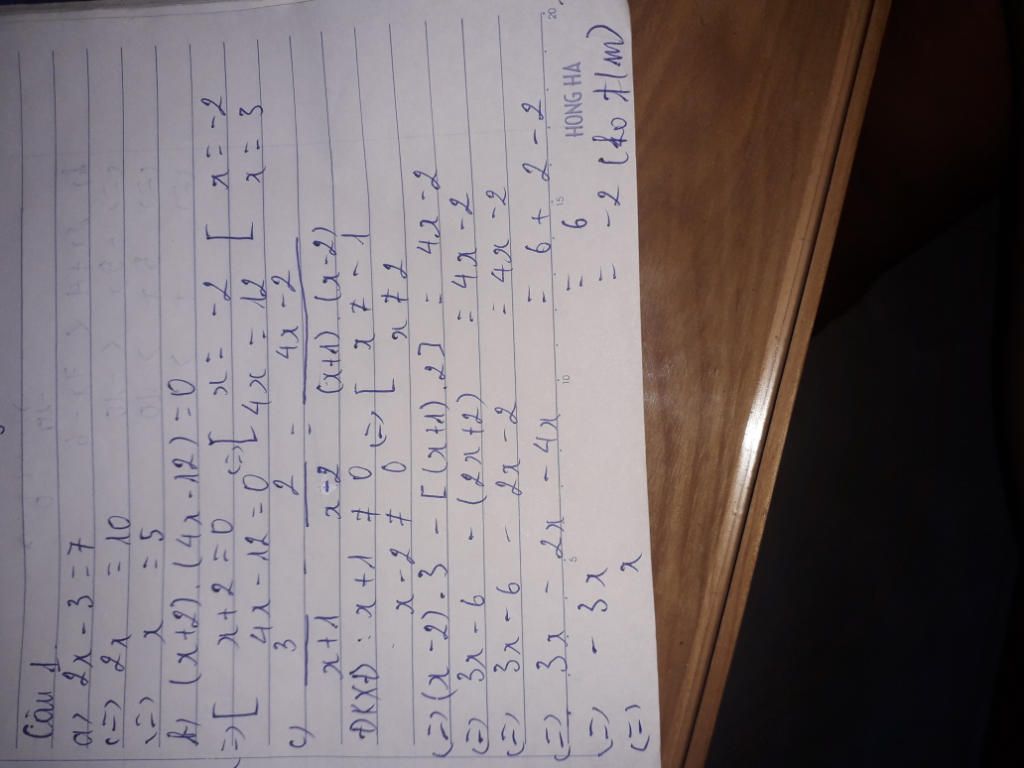 Câu 1
a) 2x - 3 = 7
(=) 2x = 10
(=) x = 5
b) (x+2).(4x-12) = 0
(=) [ x+2 = 0 (=) [ x = -2 [ x = -2
4x - 12 = 0 4x = 12 x = 3
c) 3/(x+1) - 2/(x-2) = (4x-2)/((x+1).(x-2))
ĐKXĐ: x+1 ≠ 0 (=) [ x ≠ -1
x-2 ≠ 0 x ≠ 2
(=) (x-2).3 - [(x+1).2] = 4x-2
(=) 3x-6 - (2x+2) = 4x-2
(=) 3x-6 - 2x-2 = 4x-2
(=) 3x - 2x - 4x = 6+2-2
(=) -3x = 6
(=) x = -2 (ko t/m)
HONG HA
5 10 15 20